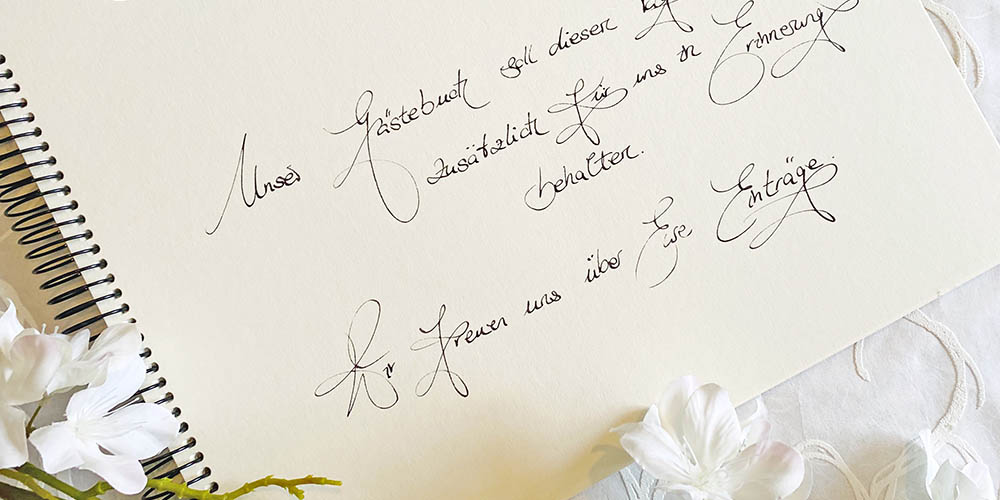 Unser Gästebuch soll diesen
zusätzlich für uns in Erinnerung
behalten.
Wir freuen uns über Eure Einträge.